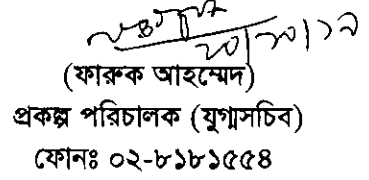 ২০/১০/১৯
(ফারুক আহম্মেদ)
প্রকল্প পরিচালক (যুগ্মসচিব)
ফোনঃ ০২-৮১৮১৫৫৪